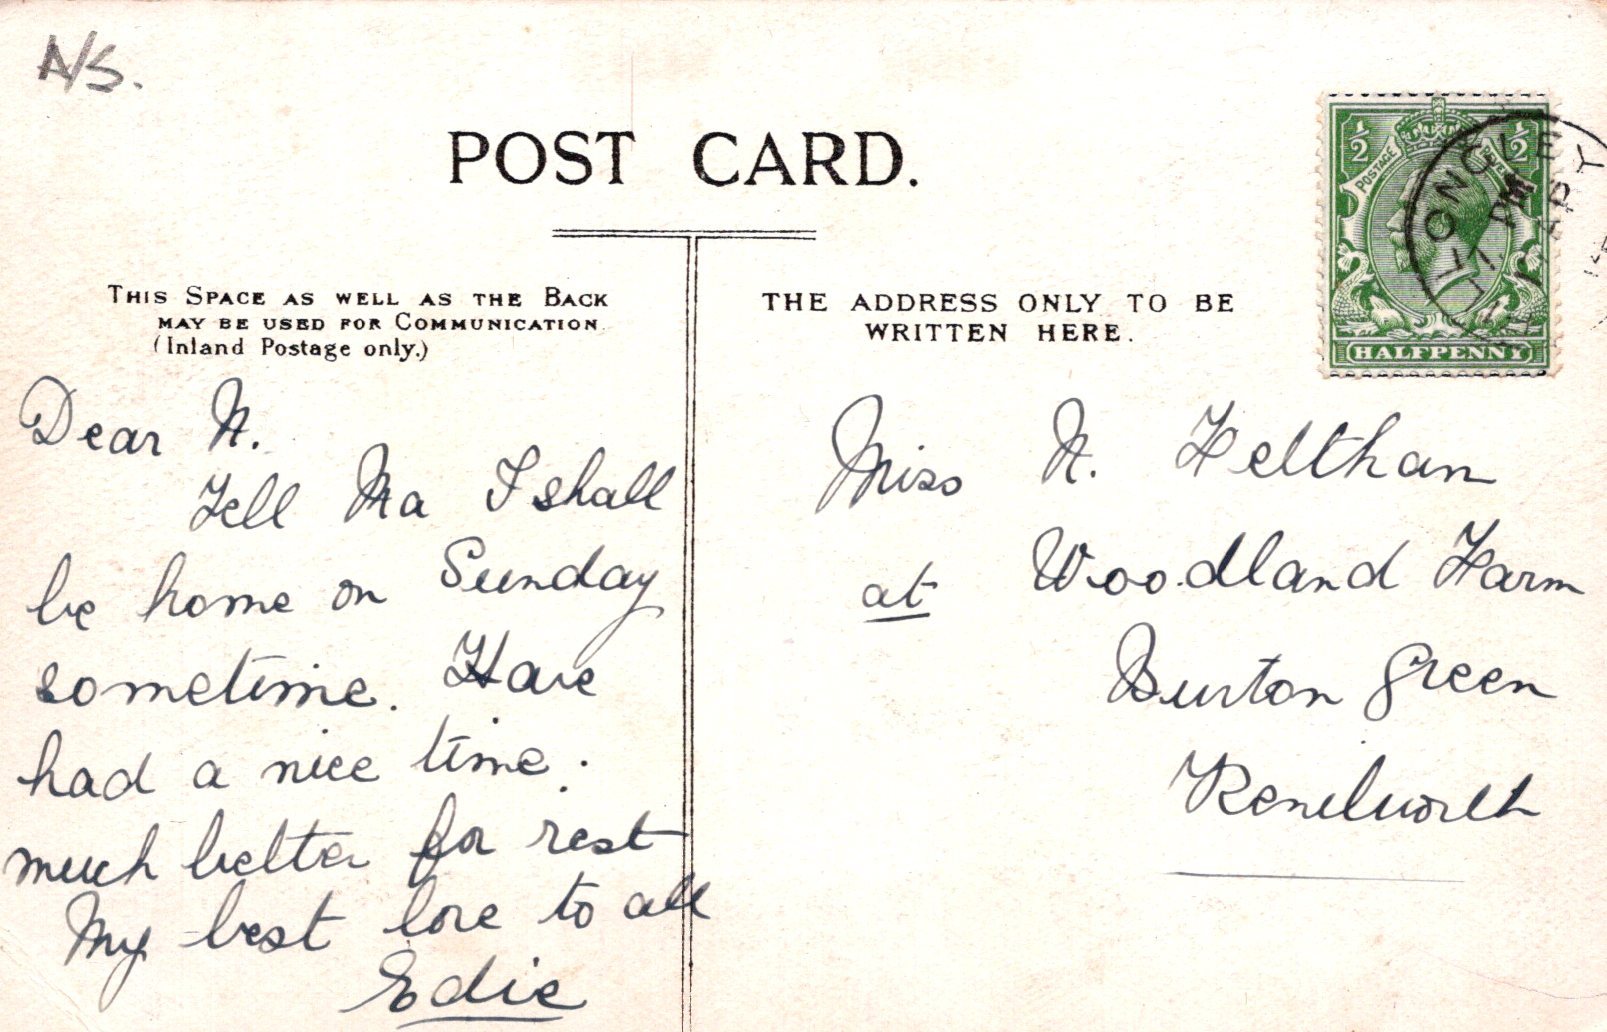 A/S.
POST CARD.
THIS SPACE AS WELL AS THE BACK
MAY BE USED FOR COMMUNICATION.
(Inland Postage only.)
THE ADDRESS ONLY TO BE
WRITTEN HERE.
½ ½
POSTAGE
HALFPENNY
Dear N.
Tell Ma I shall
be home on Sunday
sometime. Have
had a nice time.
much better for rest
My best love to all
Edie
Miss N. Feltham
at Woodland Farm
Burton Green
Kenilworth